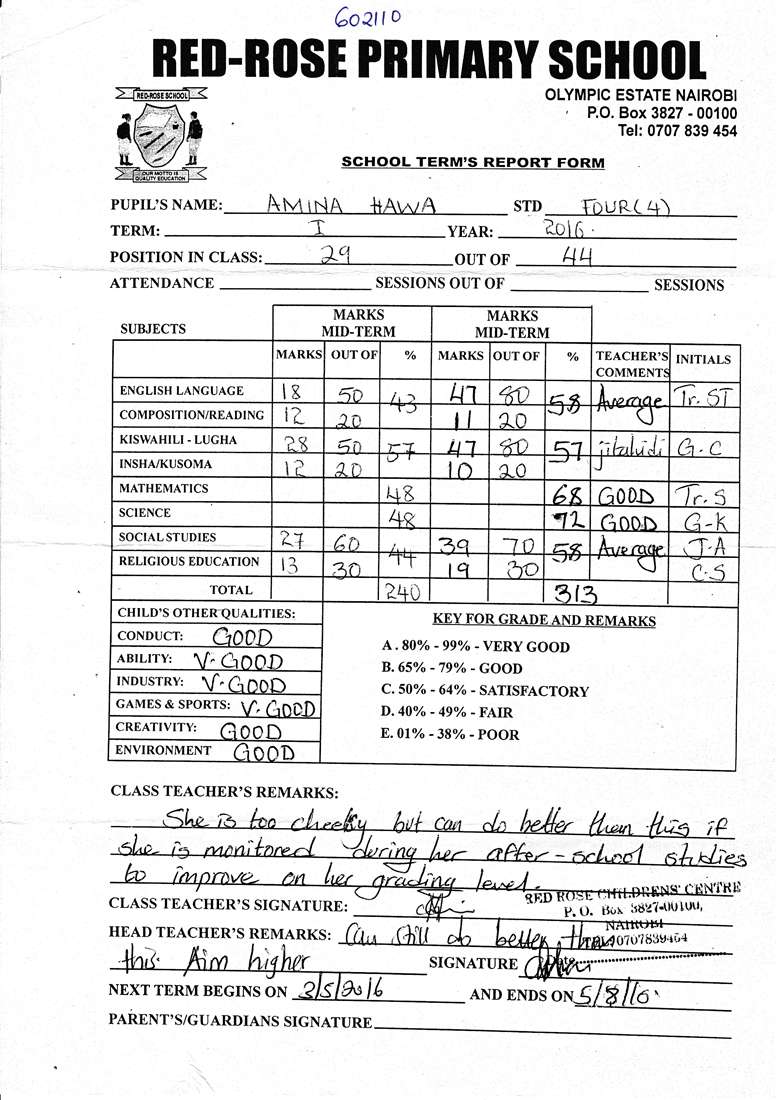 602110
RED-ROSE PRIMARY SCHOOL
RED-ROSE SCHOOL
OUR MOTTO IS
QUALITY EDUCATION
OLYMPIC ESTATE NAIROBI
P.O. Box 3827 - 00100
Tel: 0707 839 454
SCHOOL TERM'S REPORT FORM
PUPIL'S NAME: AMINA HAWA STD FOUR(4)
TERM: I YEAR: 2016.
POSITION IN CLASS: 29 OUT OF 44
ATTENDANCE SESSIONS OUT OF SESSIONS
SUBJECTS MARKS MID-TERM MARKS MID-TERM
MARKS OUT OF % MARKS OUT OF % TEACHER'S COMMENTS INITIALS
ENGLISH LANGUAGE 18 50 43 47 80 58 Average Tr. ST
COMPOSITION/READING 12 20 11 20
KISWAHILI - LUGHA 28 50 57 47 80 57 jitahidi G.C
INSHA/KUSOMA 12 20 10 20
MATHEMATICS 48 68 GOOD Tr.S
SCIENCE 48 72 GOOD G-K
SOCIAL STUDIES 27 60 44 39 70 58 Average J-A
RELIGIOUS EDUCATION 13 30 19 30 C.S
TOTAL 240 313
CHILD'S OTHER QUALITIES:
CONDUCT: GOOD
ABILITY: V.GOOD
INDUSTRY: V.GOOD
GAMES & SPORTS: V.GOOD
CREATIVITY: GOOD
ENVIRONMENT GOOD
KEY FOR GRADE AND REMARKS
A . 80% - 99% - VERY GOOD
B. 65% - 79% - GOOD
C. 50% - 64% - SATISFACTORY
D. 40% - 49% - FAIR
E. 01% - 38% - POOR
CLASS TEACHER'S REMARKS:
She is too cheeky but can do better than this if
she is monitored during her after-school studies
to improve on her grading level.
RED ROSE CHILDRENS' CENTRE
P. O. Box 3827-00100,
NAIROBI
TEL: 0707839454
CLASS TEACHER'S SIGNATURE:
HEAD TEACHER'S REMARKS: Can still do better than
this. Aim higher SIGNATURE
NEXT TERM BEGINS ON 3/5/2016 AND ENDS ON 5/8/16.
PARENT'S/GUARDIANS SIGNATURE